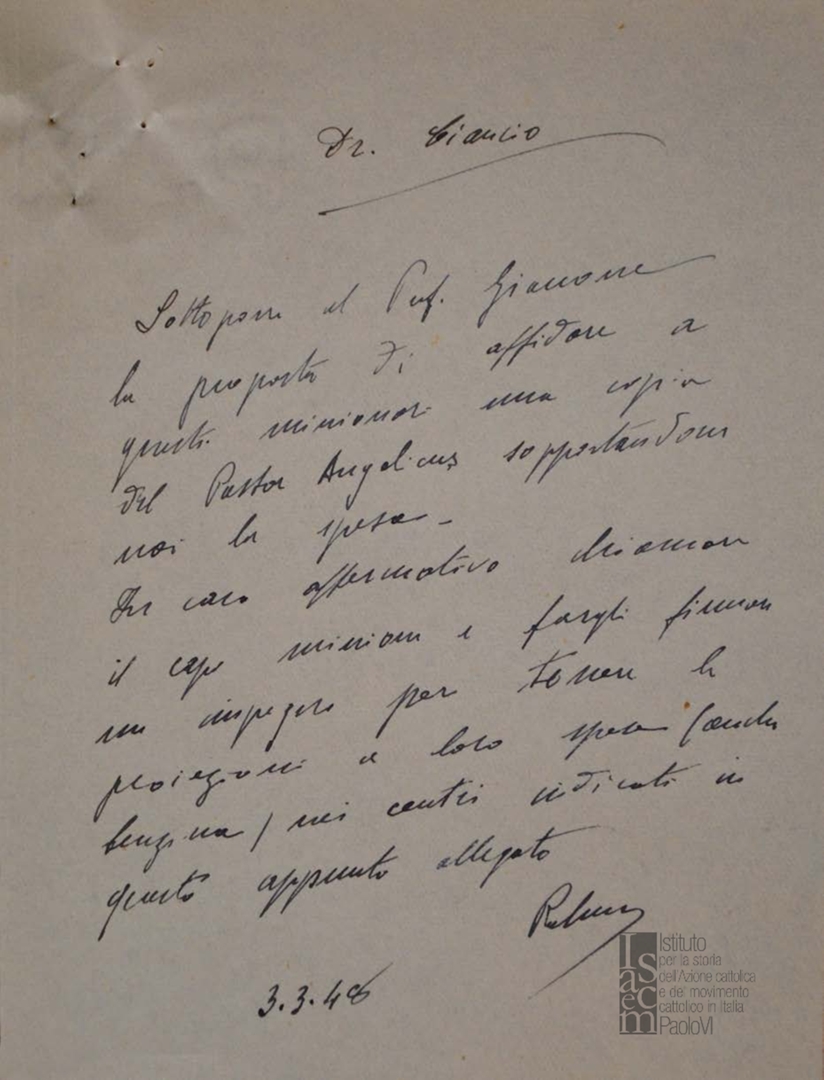 Dr. Ciancio
Sottoporre al Prof. Giannone
la proposta di affidare a
questi missionari una copia
del Pastor Angelicus sopportandone
noi la spesa -
In caso affermativo chiamare
il capo missione e fargli firmare
un impegno per tenere le
proiezioni a loro spese (anche
benzina) nei centri indicati in
questo appunto allegato
3.3.48
Istituto
per la storia
dell'Azione cattolica
e del movimento
cattolico in Italia
PaoloVI
Isacem